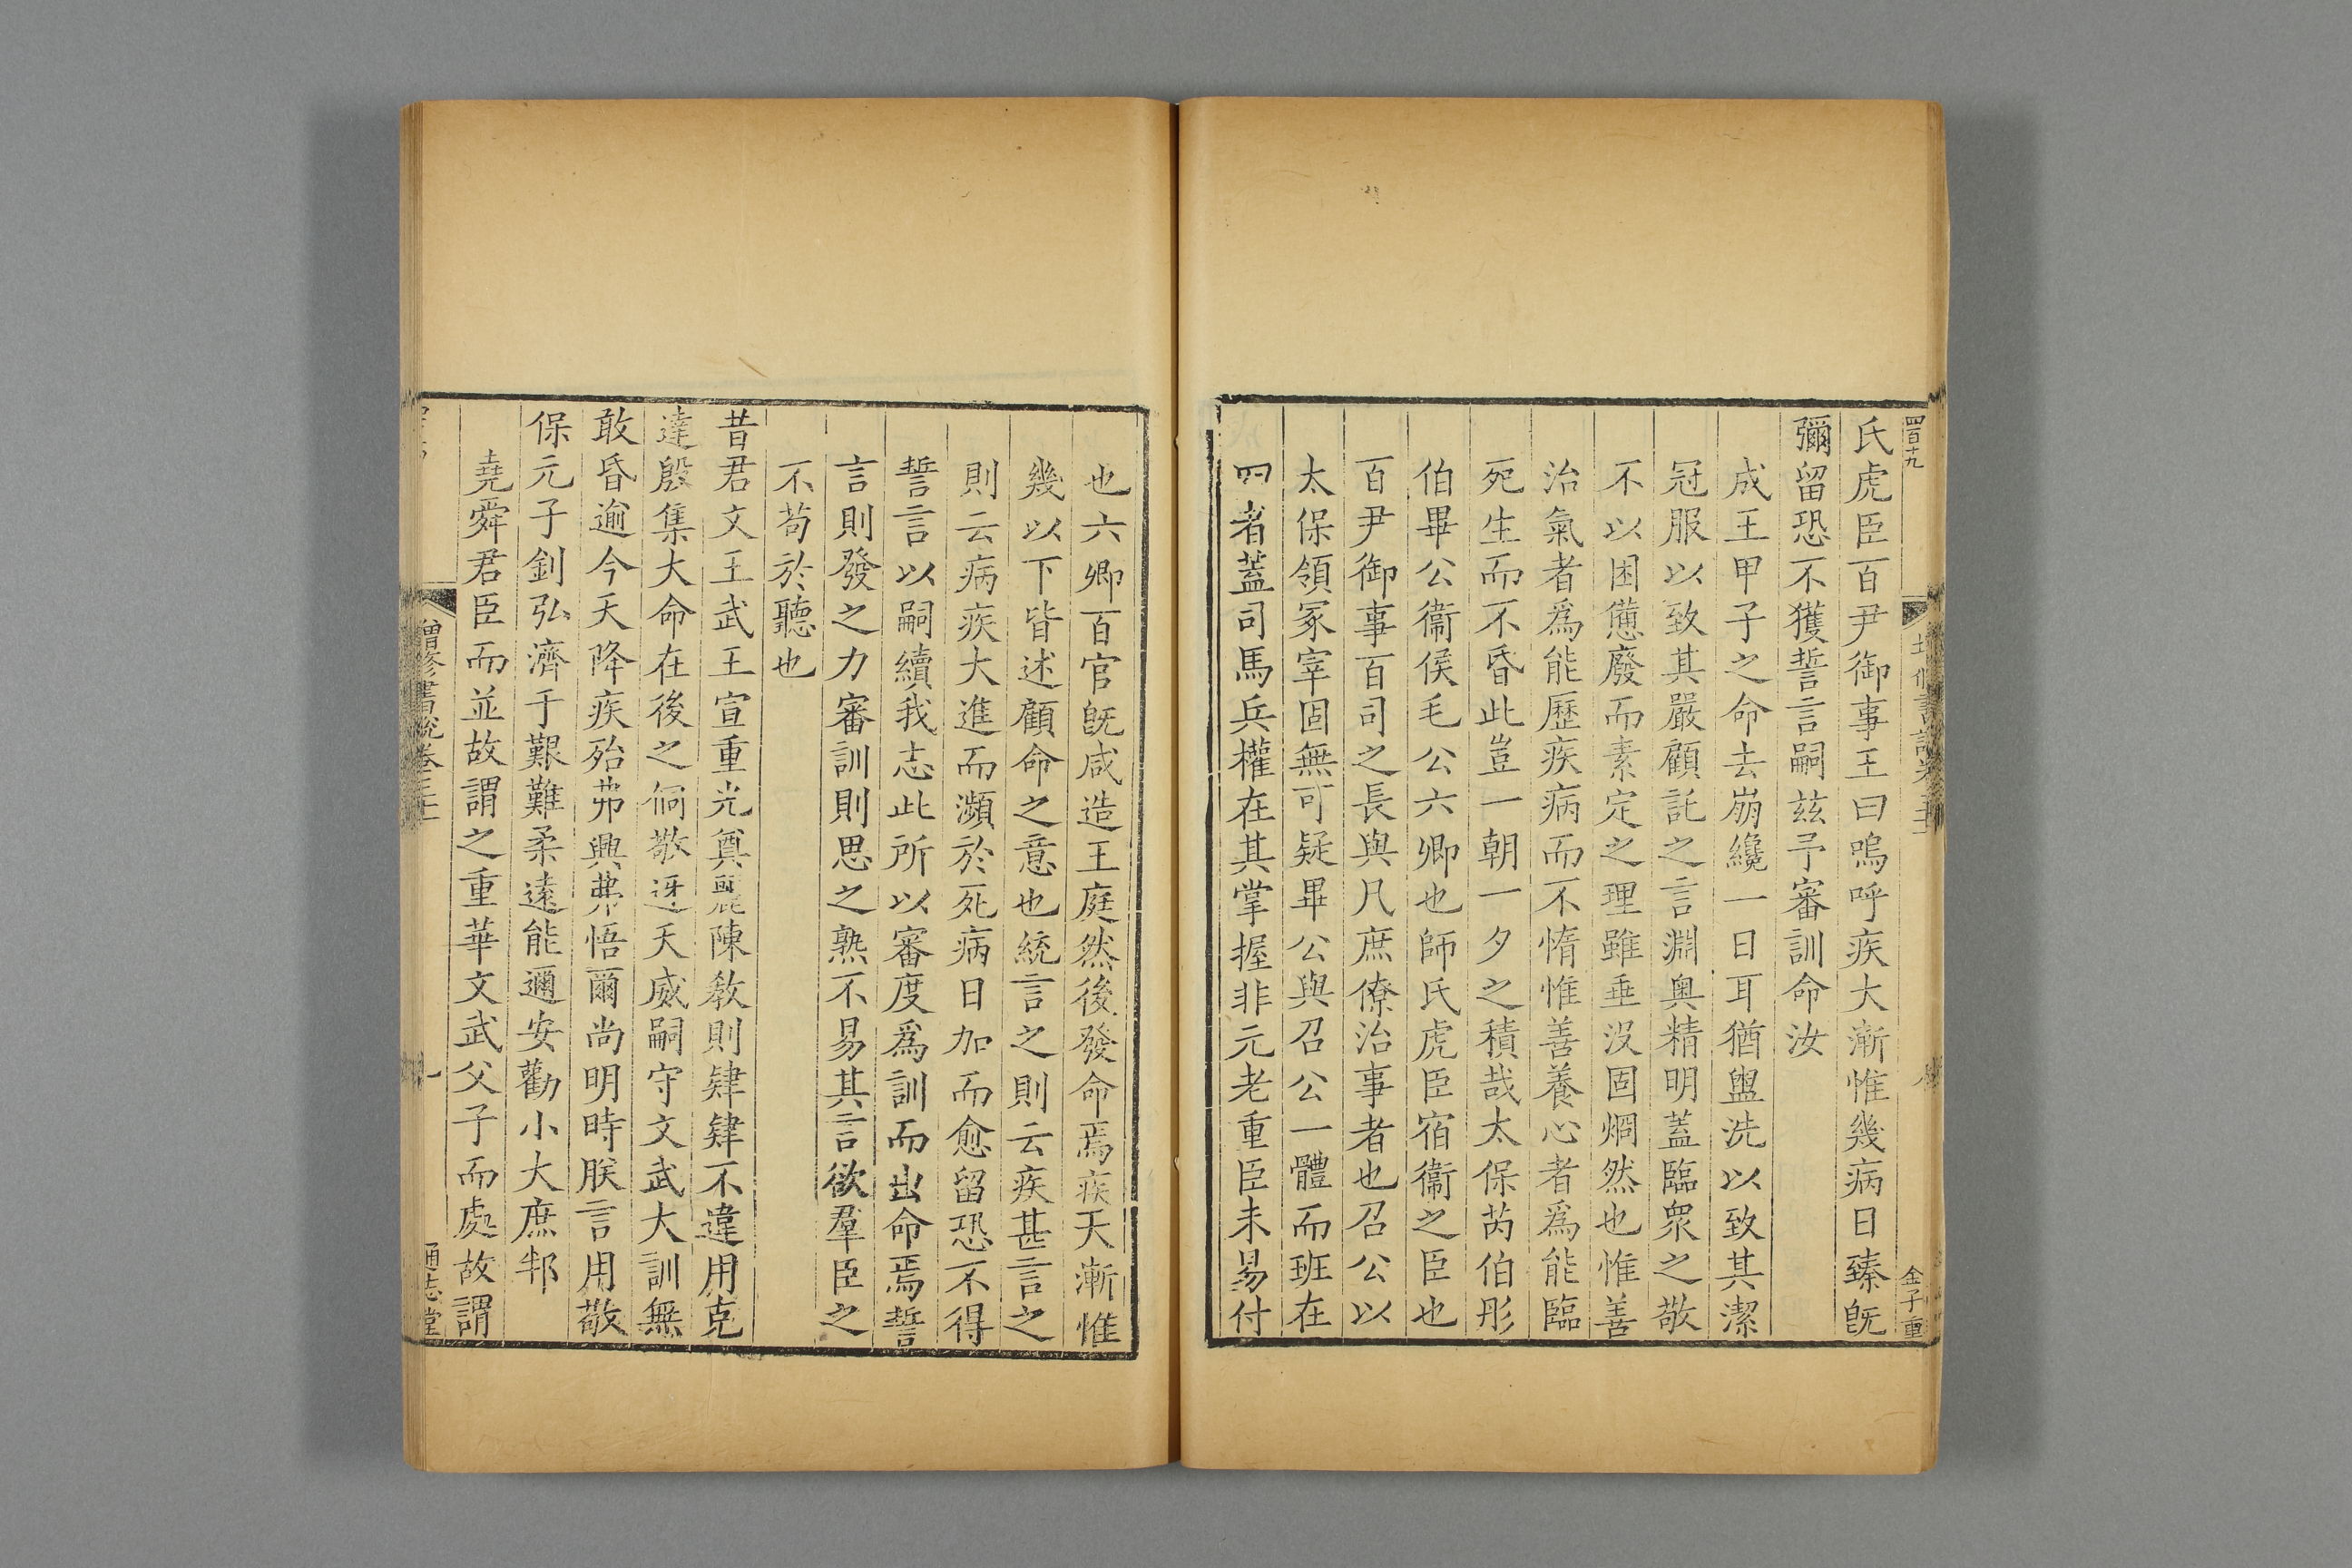 四百十九
金子重
氏虎臣百尹御事王曰嗚呼疾大漸惟幾病日臻旣
彌留恐不獲誓言嗣兹予審訓命汝
成王甲子之命去崩纔一日耳猶盥洗以致其潔
冠服以致其嚴顧託之言淵奧精明蓋臨衆之敬
不以困憊廢而素定之理雖垂沒固烱然也惟善
治氣者爲能歷疾病而不惰惟善養心者爲能臨
死生而不昏此豈一朝一夕之積哉太保芮伯彤
伯畢公衞侯毛公六卿也師氏虎臣宿衞之臣也
百尹御事百司之長與凡庶僚治事者也召公以
太保領冢宰固無可疑畢公與召公一體而班在
四者蓋司馬兵權在其掌握非元老重臣未易付
也六卿百官旣咸造王庭然後發命焉疾大漸惟
幾以下皆述顧命之意也統言之則云疾甚言之
則云病疾大進而瀕於死病日加而愈留恐不得
誓言以嗣續我志此所以審度爲訓而出命焉誓
言則發之力審訓則思之熟不易其言欲羣臣之
不苟於聽也
昔君文王武王宣重光奠麗陳敎則肄肄不違用克
達殷集大命在後之侗敬迓天威嗣守文武大訓無
敢昏逾今天降疾殆弗興弗悟爾尚明時朕言用敬
保元子釗弘濟于艱難柔遠能邇安勸小大庶邦
堯舜君臣而並故謂之重華文武父子而處故謂
增修書說卷三十一
通志堂